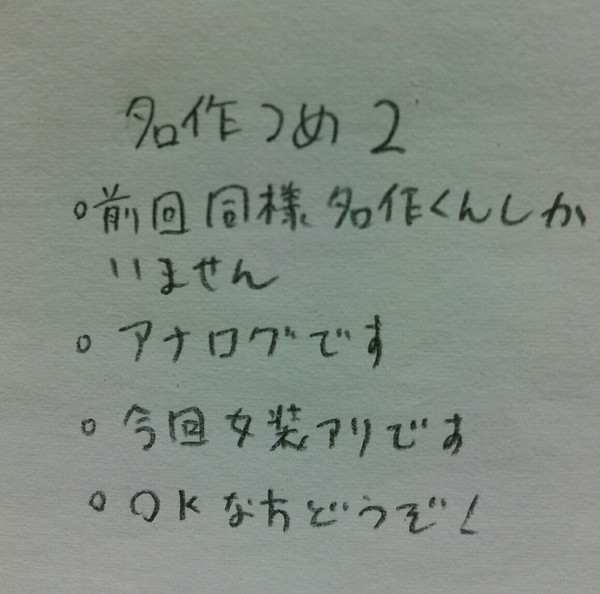 名作つめ2
○前回同様名作くんしか
いません
○アナログです
○今回女装アリです
○OKな方どうぞ!